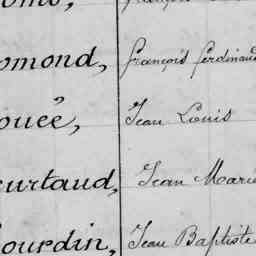 omond, françois ferdinand
ouée, Jean Louis
eurtaud, Jean Marie
ourdin, Jean Baptiste